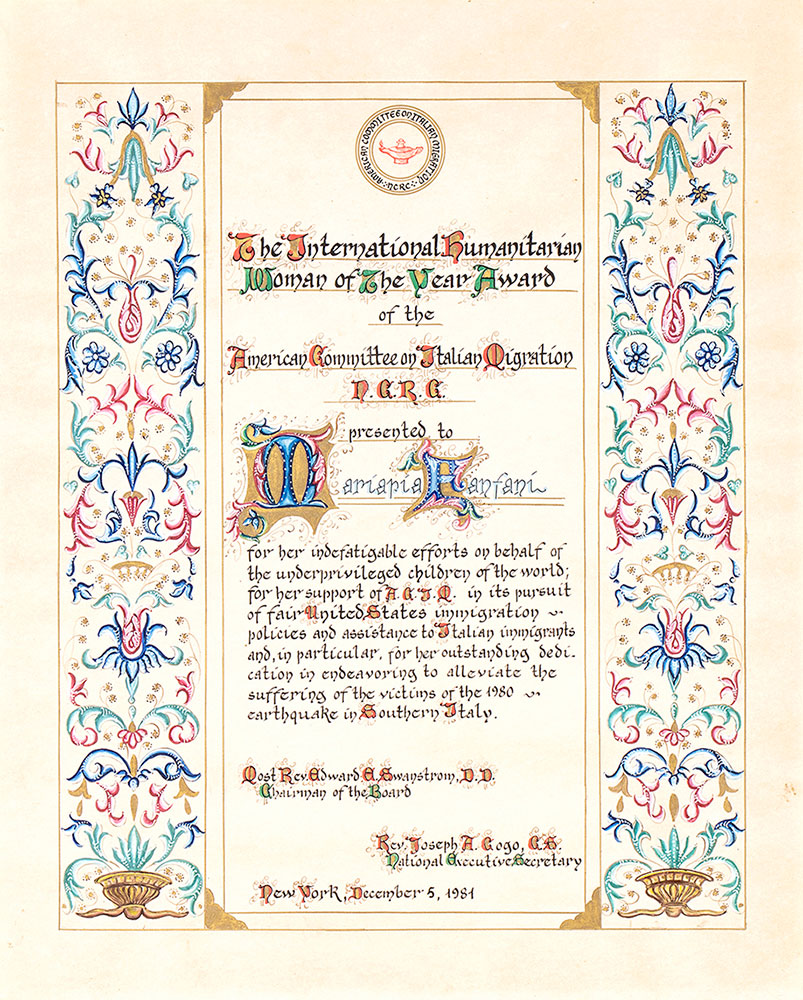 AMERICAN COMMITTEE ON ITALIAN MIGRATION
· N.C.R.C. ·
The International Humanitarian
Woman of The Year Award
of the
American Committee on Italian Migration
N.C.R.C.
presented to
Mariapia Fanfani
for her indefatigable efforts on behalf of
the underprivileged children of the world;
for her support of A.C.I.M. in its pursuit
of fair United States immigration
policies and assistance to Italian immigrants
and, in particular, for her outstanding dedi-
cation in endeavoring to alleviate the
suffering of the victims of the 1980
earthquake in Southern Italy.
Most Rev. Edward E. Swanstrom, D.D.
Chairman of the Board
Rev. Joseph A. Cogo, C.S.
National Executive Secretary
New York, December 5, 1981